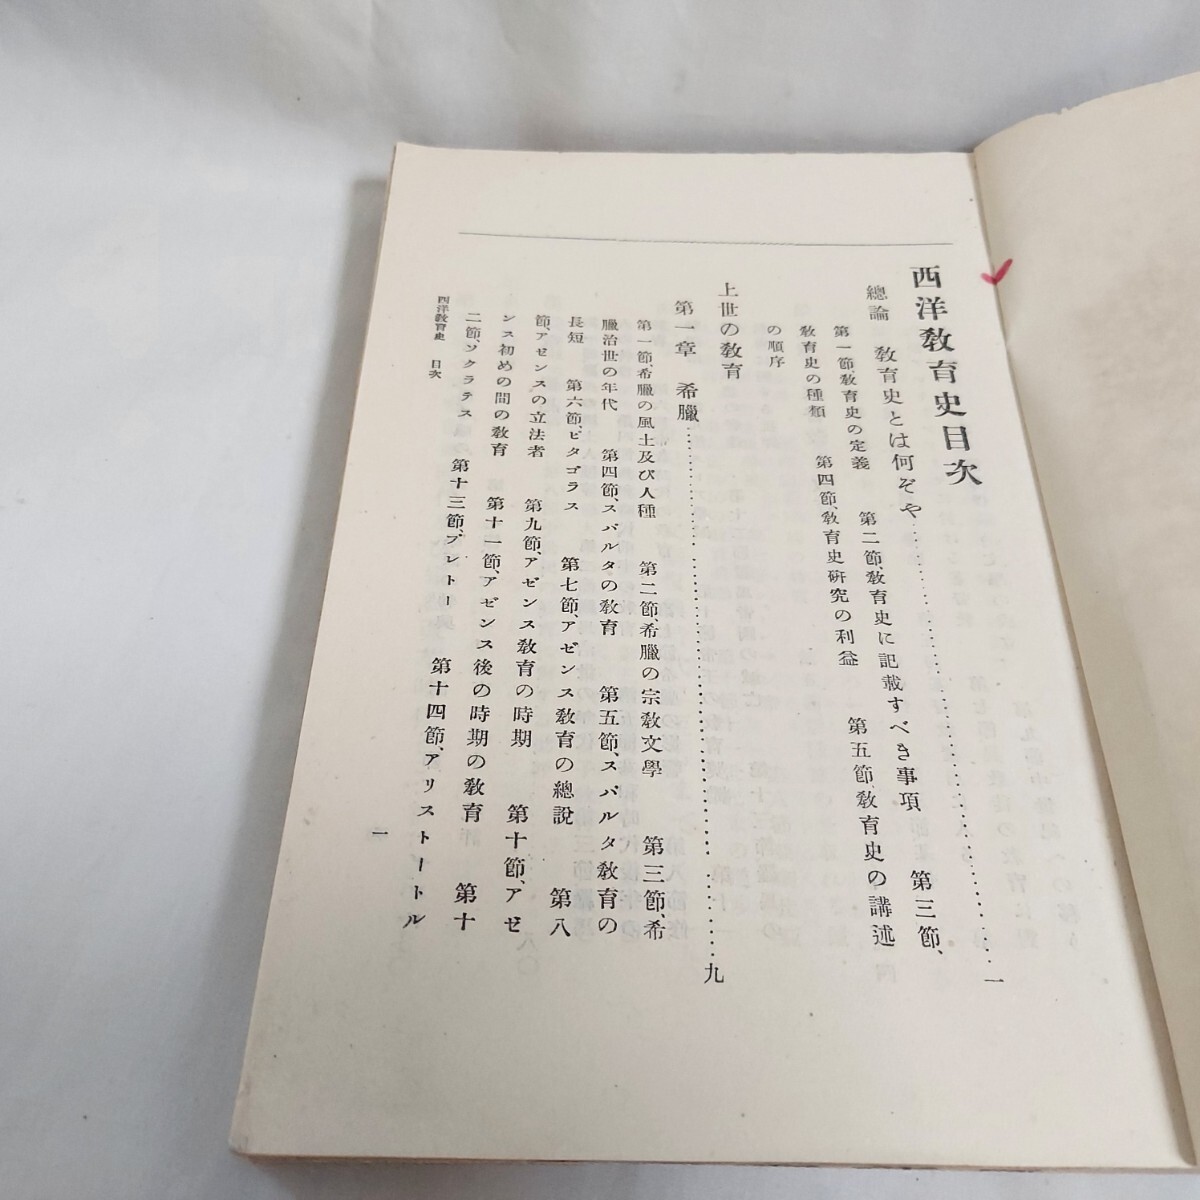 西洋敎育史目次
總論　敎育史とは何ぞや……一
第一節、敎育史の定義　第二節、敎育史に記載すべき事項　第三節、
敎育史の種類　第四節、敎育史硏究の利益　第五節、敎育史の講述
の順序
上世の敎育
第一章　希臘……九
第一節、希臘の風土及び人種　第二節、希臘の宗敎文學　第三節、希
臘治世の年代　第四節、スパルタの敎育　第五節、スパルタ敎育の
長短　第六節、ピタゴラス　第七節、アゼンス敎育の總說　第八
節、アゼンスの立法者　第九節、アゼンス敎育の時期　第十節、アゼ
ンス初めの間の敎育　第十一節、アゼンス後の時期の敎育　第十
二節、ソクラテス　第十三節、プレトー　第十四節、アリストートル
西洋敎育史　目次
一